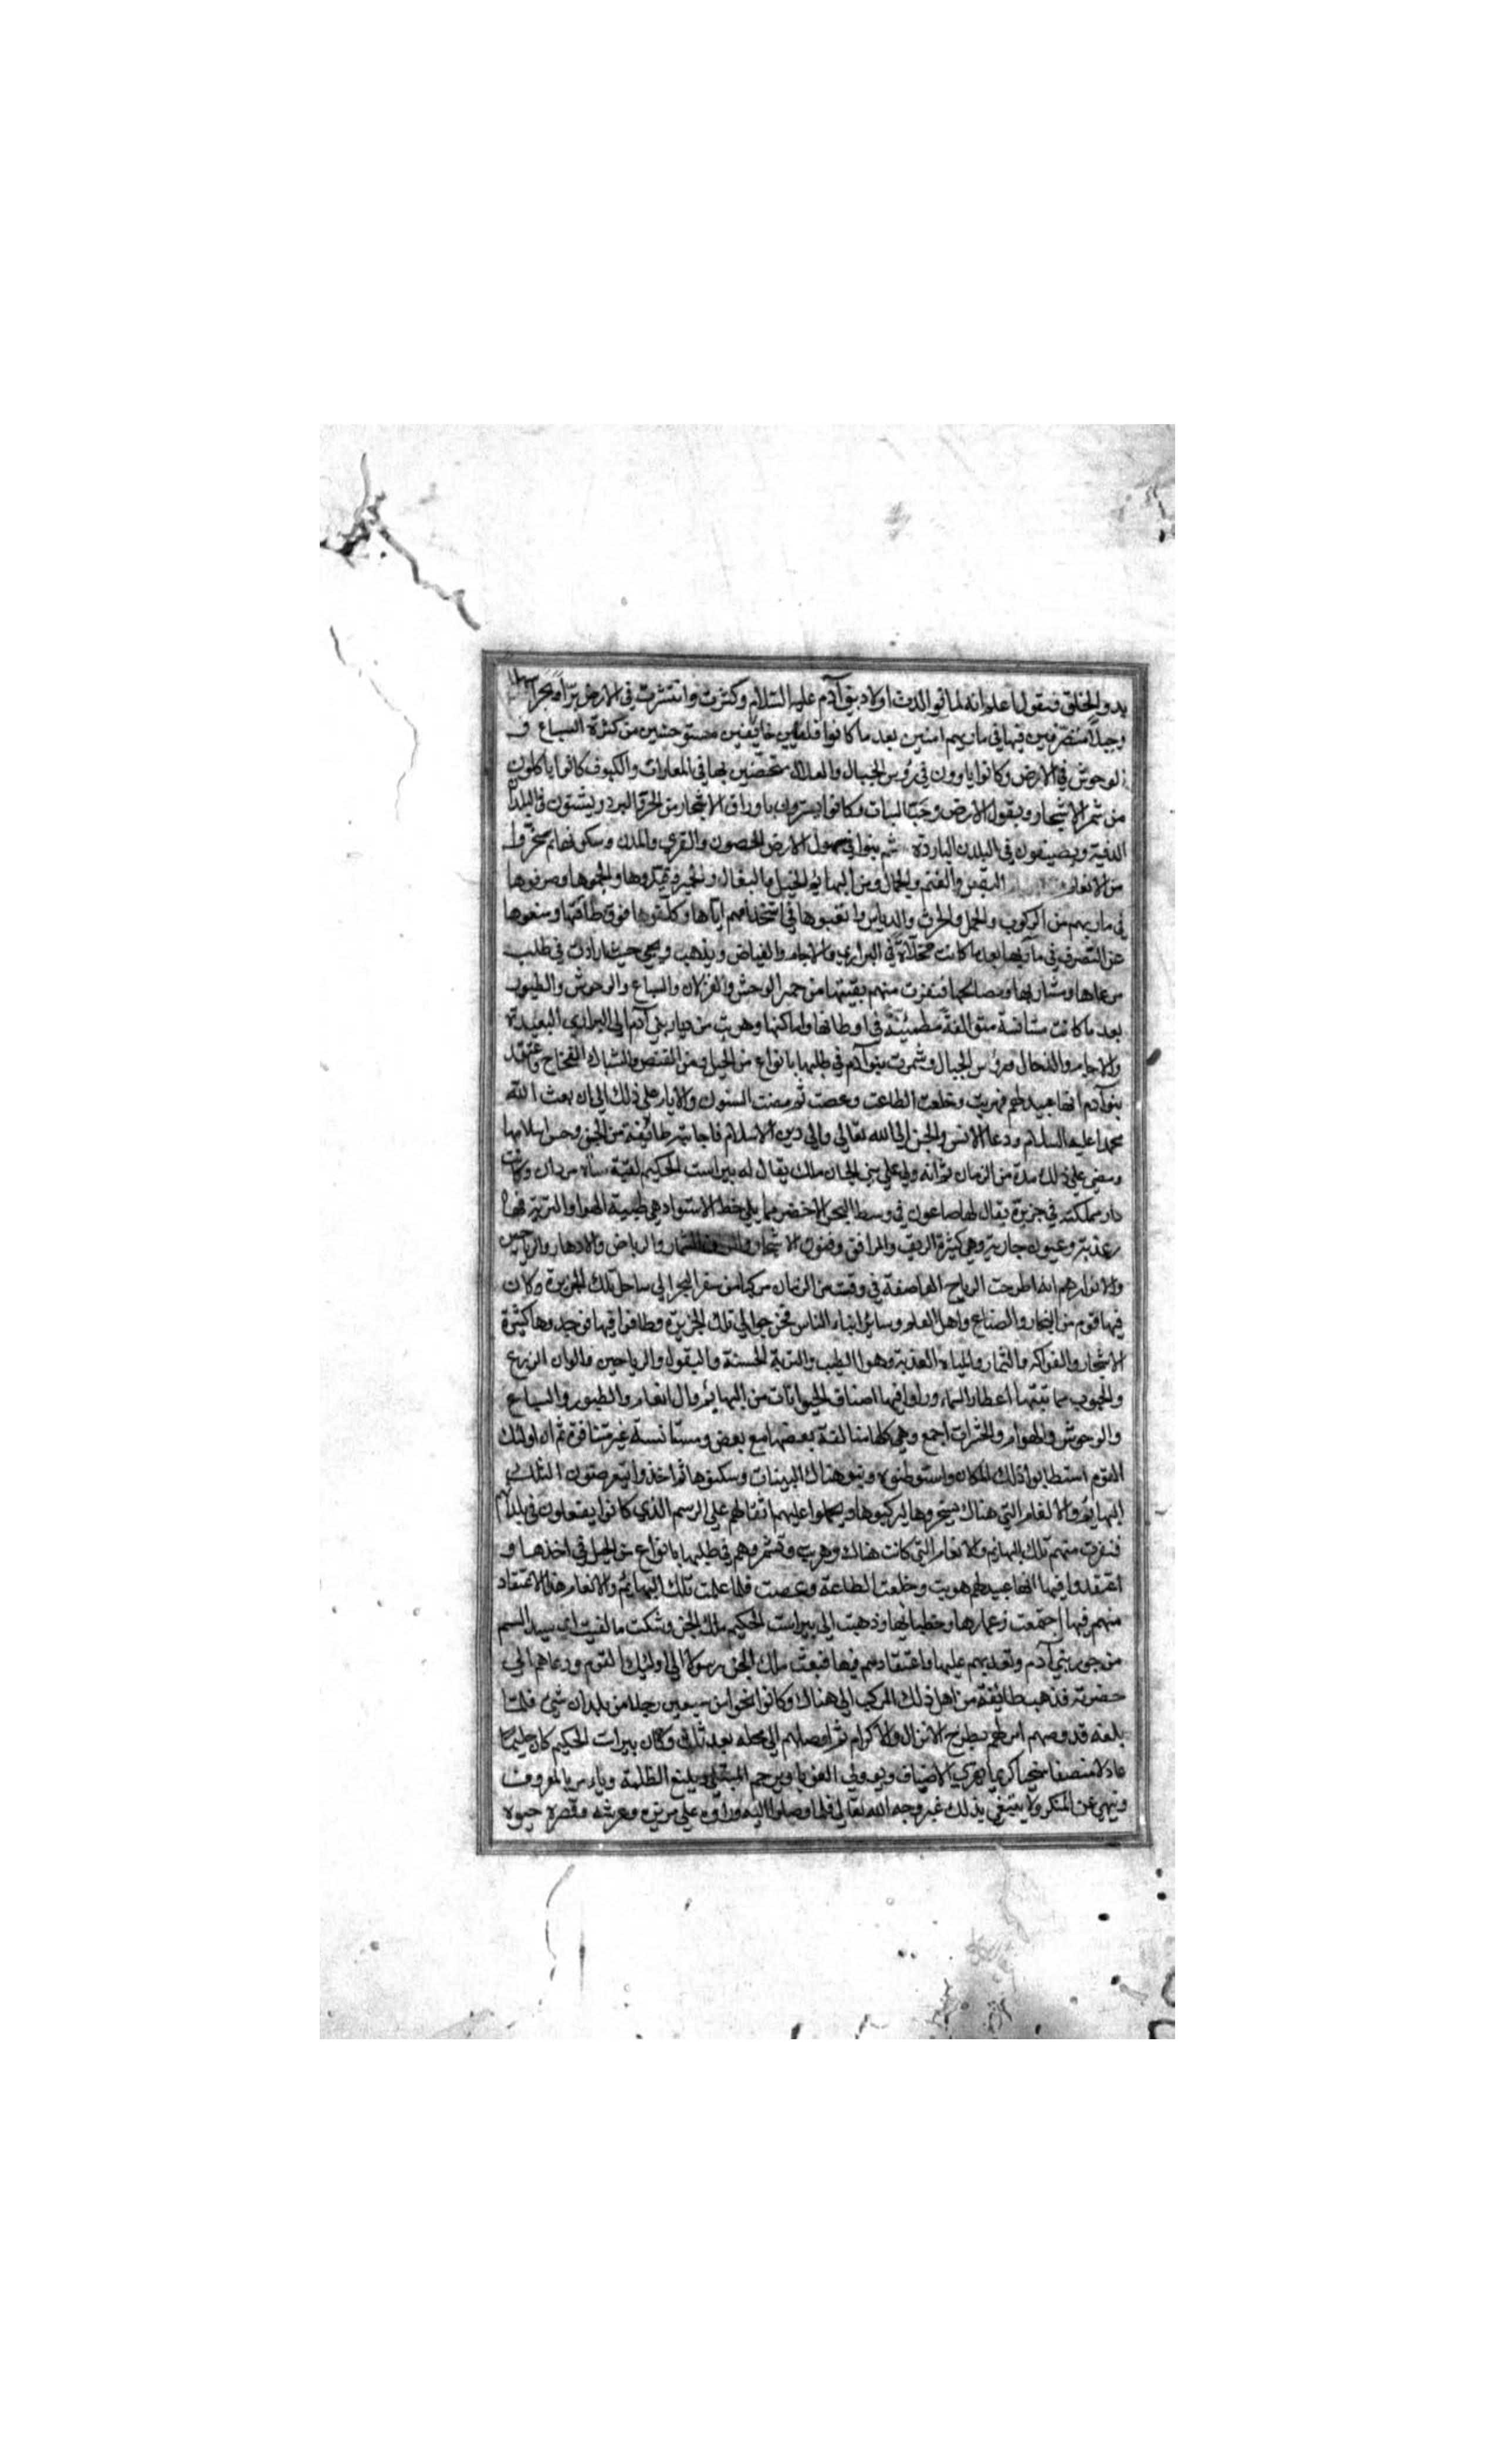 بدو الخلق فنقول اعلم انه لما توالدت اولاد بني آدم عليه السلام وكثرت وانتشرت في الارض برا وبحرا سهلا
وجبلا متصرفين فيها في ماربهم امنين بعد ما كانوا قليلين خايفين مستوحشين من كثرة السباع و
الوحوش في الارض وكانوا ياوون في رؤس الجبال والتلال متحصنين بها في المغارات والكهوف كانوا ياكلون
من ثمر الاشجار وبقول الارض وحب النبات وكانوا يستترون باوراق الاشجار من الحر والبرد ويشتون في البلدان
الدفية ويصيفون في البلدن الباردة ثم بنوا في سهول الارض الحصون والقري والمدن وسكنوها ثم سخروا
من الانعام البقر والغنم والجمال ومن البهايم الخيل والبغال والحمير وقيدوها والجموها وصرفوها
في ماربهم من الركوب والحمل والحرث والدياس واتعبوها في استخدامهم اياها وكلفوها فوق طاقتها ومنعوها
عن التصرف في مآربها بعد ما كانت مخلاة في البراري والاجام والغياض ويذهب ويجي حيث ارادت في طلب
مرعاها ومشاربها ومصالحها فنفرت منهم بقيتها من حمر الوحش والغزلان والسباع والوحوش والطيور
بعد ما كانت مستانسة متوالفة مطمئنة في اوطانها واماكنها وهربت من ديار بني آدم الي البراري البعيدة
والاجام والدحال ورؤس الجبال وشمرت بنو آدم في طلبها بانواع من الحيل ومن القنص والشباك الفخاخ واعتقد
بنو آدم انها عبيد لهم فهربت وخلعت الطاعت وعصت ثم مضت السنون والايام علي ذلك الي ان بعث الله
محمدا عليه السلام ودعا الانس والجن الي الله تعالي والي دين الاسلام فاجابته طائفة من الجن وحسن اسلامها
ومضي علي ذلك مدة من الزمان ثم انه ولي علي بني الجان ملك يقال له بيراست الحكيم لقبه شاه مردان وكانت
دار مملكته في جزيرة يقال لها صاعون في وسط البحر الاخضر مما يلي خط الاستواد هي طيبة الهوا والتربة فيها
عذبة وعيون جارية وهي كثيرة الريف والمرافق وفنون الاشجار والثمار والرياض والانهار والرياحين
والانوار هم انه طرحت الرياح العاصفة في وقت من الزمان مركبا من سفر البحر الي ساحل تلك الجزيرة وكان
فيها قوم من التجار والصناع واهل العلم وساير ابناء الناس فخرجوا الي تلك الجزيرة وطافوا فيها فوجدوها كثيرة
الاشجار والفواكه والثمار والمياه العذبة وهوا الطيب والتربة الحسنة والبقول والرياحين والوان الزرع
والحبوب مما تنبتها امطار السماء وراوا فيها اصناف الحيوانات من البهائم والانعام والطيور والسباع
والوحوش والهوام والحشرات اجمع وهي كلها متالفة بعضها مع بعض ومستانسة غير متنافرة ثم ان اولئك
القوم استطابوا ذلك المكان واستوطنوه وبنوا هناك البينات وسكنوها ثم اخذوا يتعرضون لتلك
البهائم والانعام التي هناك يسخروها ليركبوها ويحملوا عليهم اثقالهم علي الرسم الذي كانوا يفعلون في بلدانهم
فنفرت منهم تلك البهائم والانعام التي كانت هناك وهربت وتشمروهم في طلبها بانواع من الحيل في اخذها و
اعتقدوا فيها انها عبيد لهم هربت وخلعت الطاعة وعصت فلما علمت تلك البهائم والانعام هذا الاعتقاد
منهم فيها اجتمعت زعمارها وخطباؤها وذهبت الي بيراست الحكيم ملك الجن وشكت ما لقيت
من جور بني آدم وتعديهم عليها واعتقادهم فيها فبعث ملك الجن رسولا الي اولئك القوم ودعاهم الي
حضرته فذهب طايفة من اهل ذلك المركب الي هناك وكانوا نحوا من سبعين رجلا من بلدان شتي فلما
بلغه قدومهم امر لهم بطرح الانزال والاكرام ثم اوصلهم الي محله بعد ثلث وكان بيراست الحكيم كان حليما
عادلا منصفا سخيا كريما يقري الاضياف ويووي الغربا ويرحم المبتلي ويمنع الظلمة ويامر بالمعروف
وينهي عن المنكر ولا يبتغي بذلك غير وجه الله تعالي فلما وصلوا اليه وراوه علي سريره وعرشه وقصره حيوه